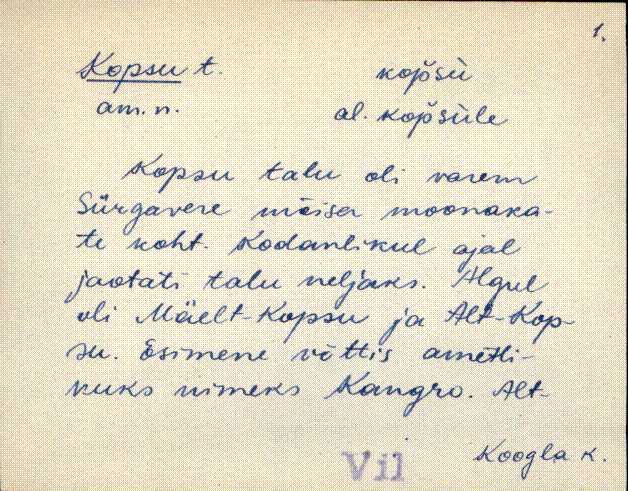 1.
Kopsu t. kop̆sü
am. n. al. kop̆süle
Kopsu talu oli varem
Sürgavere mõisa moonaka-
te koht. Kodanlikul ajal
jaotati talu neljaks. Algul
oli Mäelt-Kopsu ja Alt-Kop-
su. Esimene võttis ametli-
kuks nimeks Kangro. Alt-
Vil Koogla k.